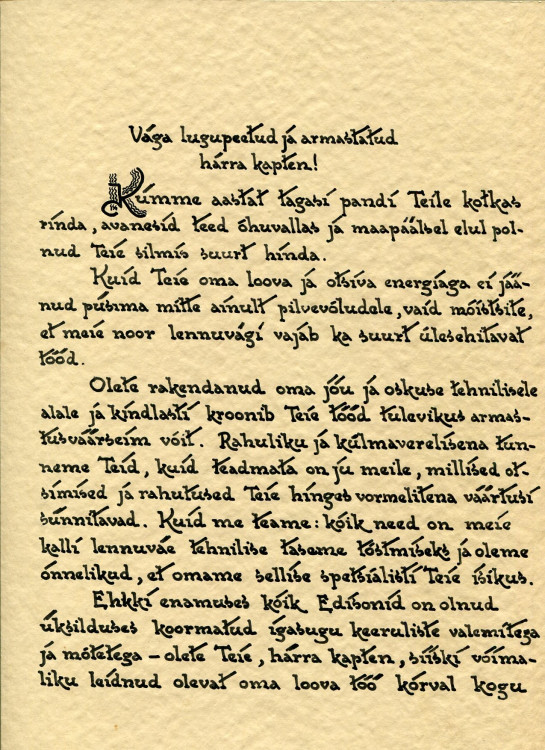 Väga lugupeetud ja armastatud
härra kapten!
Kümme aastat tagasi pandi Teile kotkas
rinda, avanesid teed õhuvallas ja maapäälsel elul pol-
nud Teie silmis suurt hinda.
Kuid Teie oma loova ja otsiva energiaga ei jää-
nud püsima mitte ainult pilvevõludele, vaid mõistsite,
et meie noor lennuvägi vajab ka suurt ülesehitavat
tööd.
Olete rakendanud oma jõu ja oskuse tehnilisele
alale ja kindlasti kroonib Teie tööd tulevikus armas-
tusväärseim võit. Rahuliku ja külmaverelisena tun-
neme Teid, kuid teadmata on ju meile, millised ot-
simised ja rahutused Teie hinges vormelitena väärtusi
sünnitavad. Kuid me teame: kõik need on meie
kalli lennuväe tehnilise taseme tõstmiseks ja oleme
õnnelikud, et omame sellise spetsialisti Teie isikus.
Ehkki enamuses kõik Edisonid on olnud
üksilduses koormatud igasugu keeruliste valemitega
ja mõtetega – olete Teie, härra kapten, siiski võima-
liku leidnud olevat oma loova töö kõrval kogu